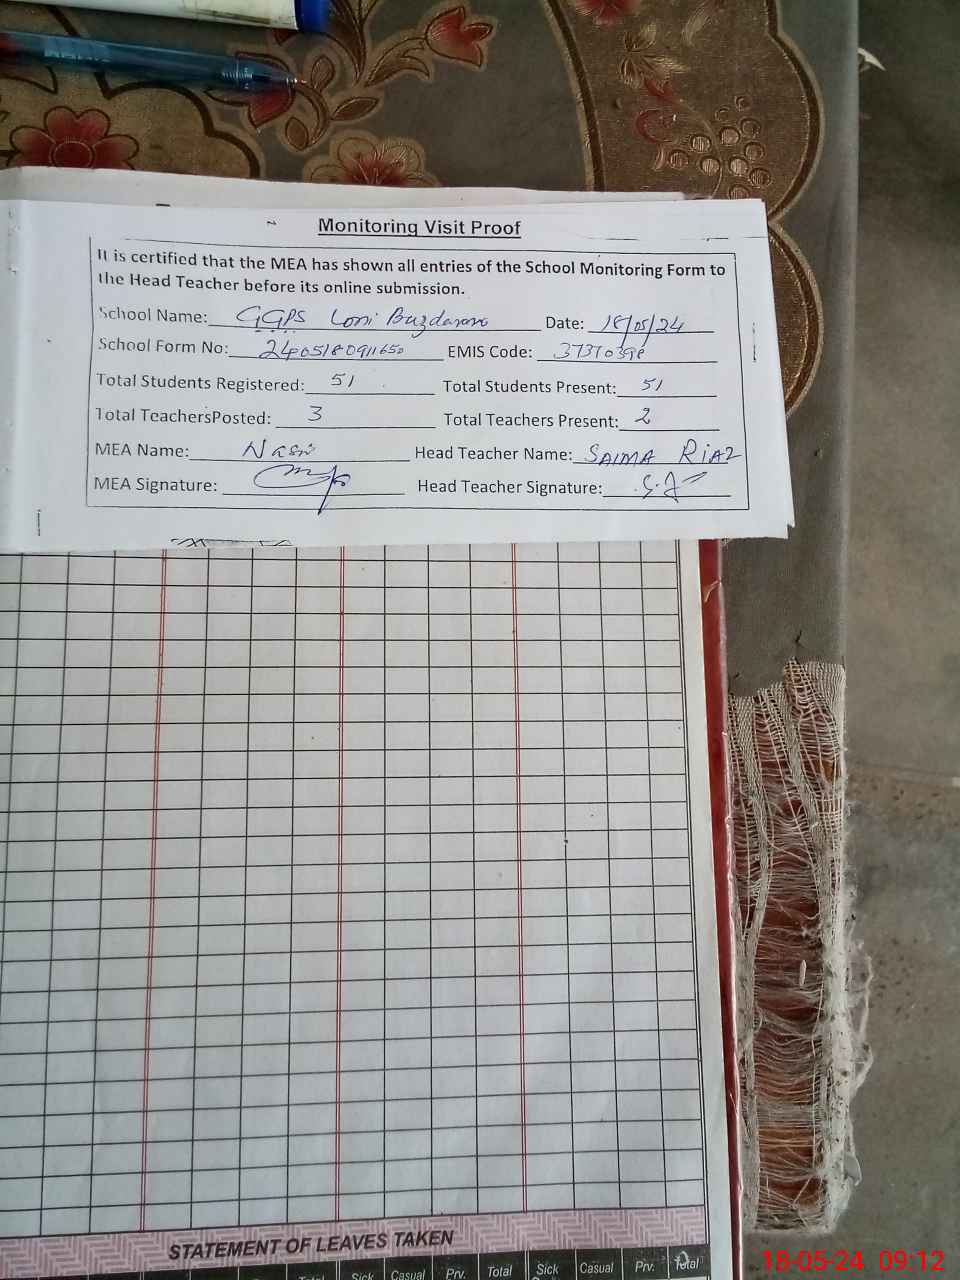 Monitoring Visit Proof
It is certified that the MEA has shown all entries of the School Monitoring Form to
the Head Teacher before its online submission.
School Name: GGPS Loni Buzdarano Date: 18/05/24
School Form No: 2405180911650 EMIS Code: 37310398
Total Students Registered: 51 Total Students Present: 51
Total TeachersPosted: 3 Total Teachers Present: 2
MEA Name: Nasir Head Teacher Name: SAIMA RiAZ
MEA Signature: Head Teacher Signature:
STATEMENT OF LEAVES TAKEN
Total Sick Casual Prv. Total Sick Casual Prv. Total
18-05-24 09:12